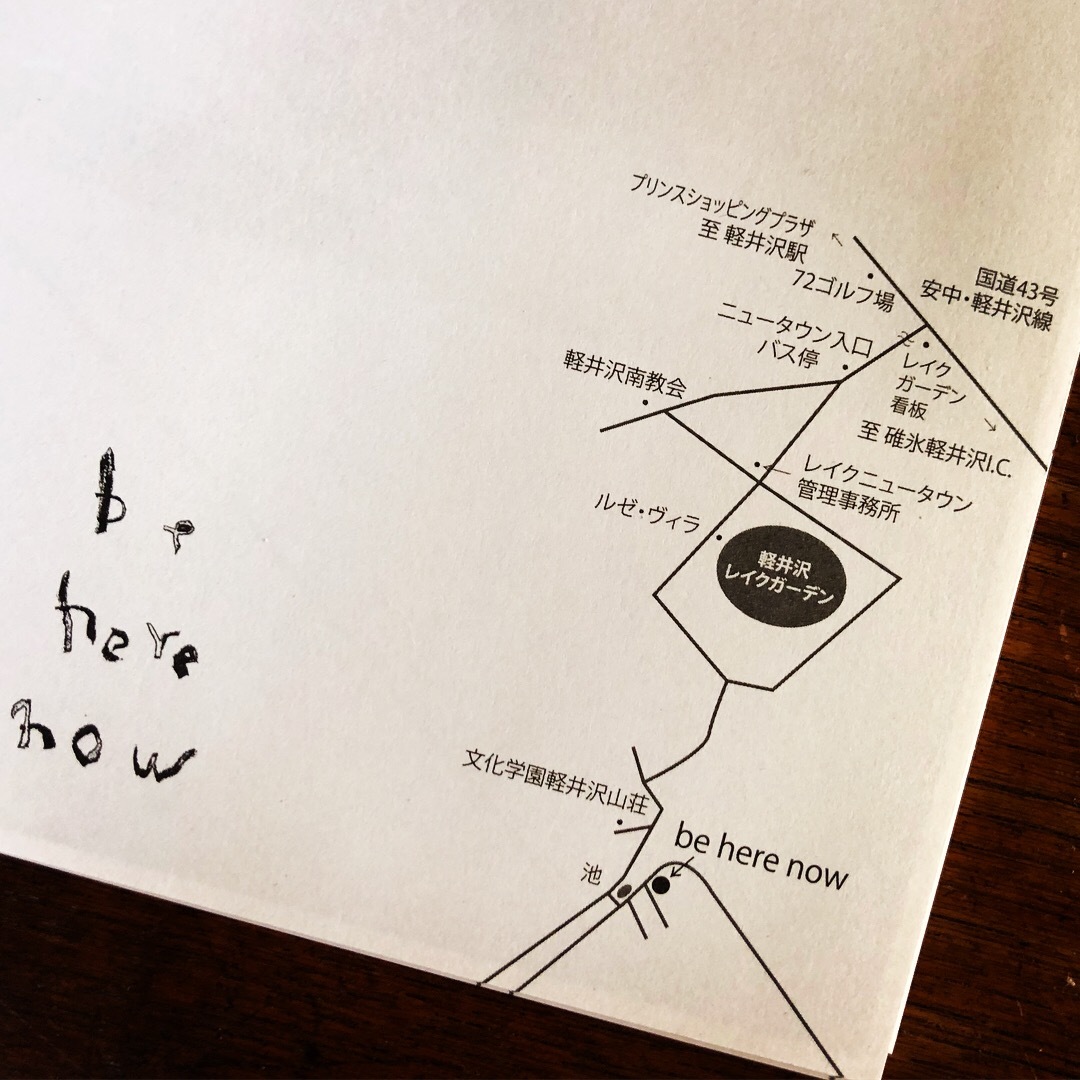 プリンスショッピングプラザ
至 軽井沢駅
72ゴルフ場
国道43号
安中・軽井沢線
ニュータウン入口
バス停
レイク
ガーデン
看板
至 碓氷軽井沢I.C.
軽井沢南教会
レイクニュータウン
管理事務所
ルゼ・ヴィラ
軽井沢
レイクガーデン
文化学園軽井沢山荘
be here now
池
be
here
now